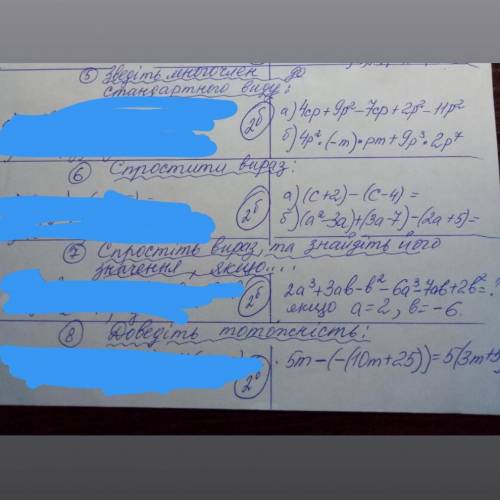 5 Зведіть многочлен до
стандартного виду:
2б а) 4cp+9p²-7cp+2p²-11p²
б) 4p²·(-m)·pm+9p³·2p⁷
6 Спростити вираз:
2б а) (c+2)-(c-4)=
б) (a²-3a)+(3a-7)-(2a+5)=
7 Спростіть вираз, та знайдіть його
значення, якщо...:
2б 2a³+3ab-b²-6a³-7ab+2b²=?
якщо a=2, b=-6.
8 Доведіть тотожність:
2б 5m-(-(10m+25))=5(3m+5